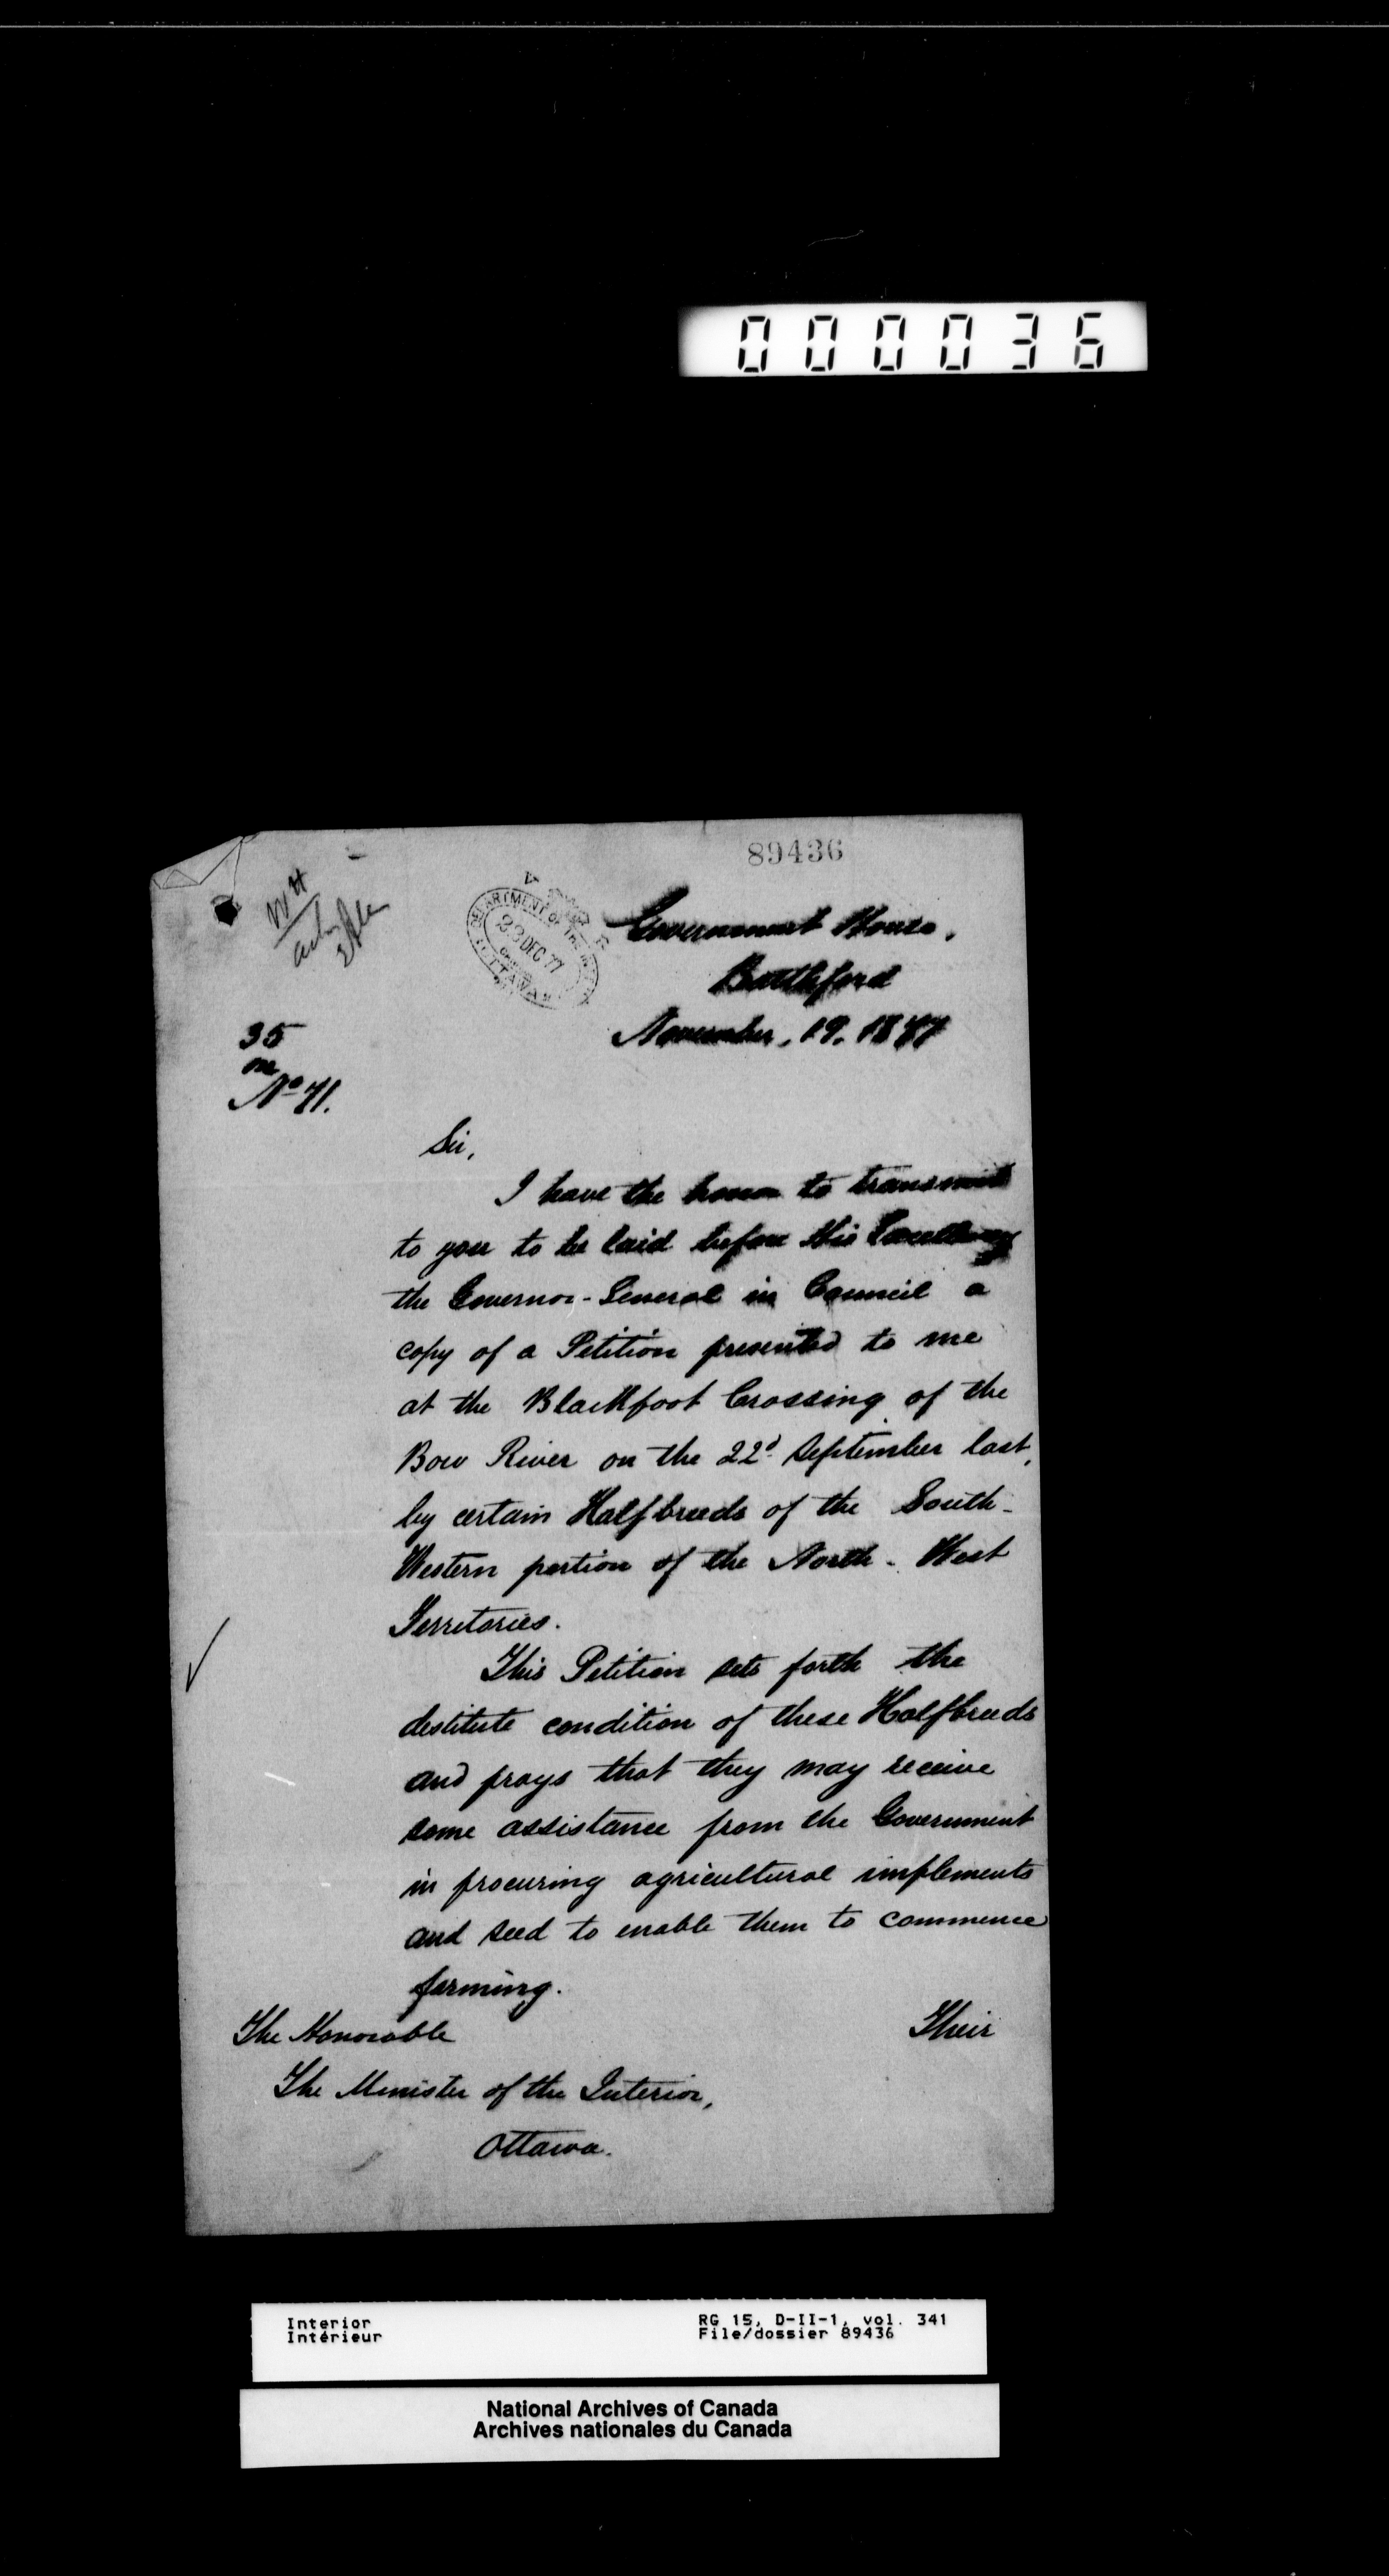 000036
89436
DEPARTMENT OF THE
28 DEC 77
OTTAWA
Government House,
Battleford
November, 19. 1877
35
No 71.
Sir,
I have the honor to transmit
to you to be laid before His Excellency
the Governor-General in Council a
copy of a Petition presented to me
at the Blackfoot Crossing of the
Bow River on the 22d September last,
by certain Halfbreeds of the South-
Western portion of the North-West
Territories.
This Petition sets forth the
destitute condition of these Halfbreeds
and prays that they may receive
some assistance from the Government
in procuring agricultural implements
and seed to enable them to commence
farming.
Their
The Honorable
The Minister of the Interior,
Ottawa.
Interior RG 15, D-II-1, vol. 341
Intérieur File/dossier 89436
National Archives of Canada
Archives nationales du Canada